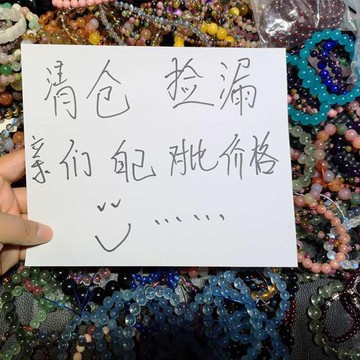 清仓 捡漏
亲们 自己 对比价格
......